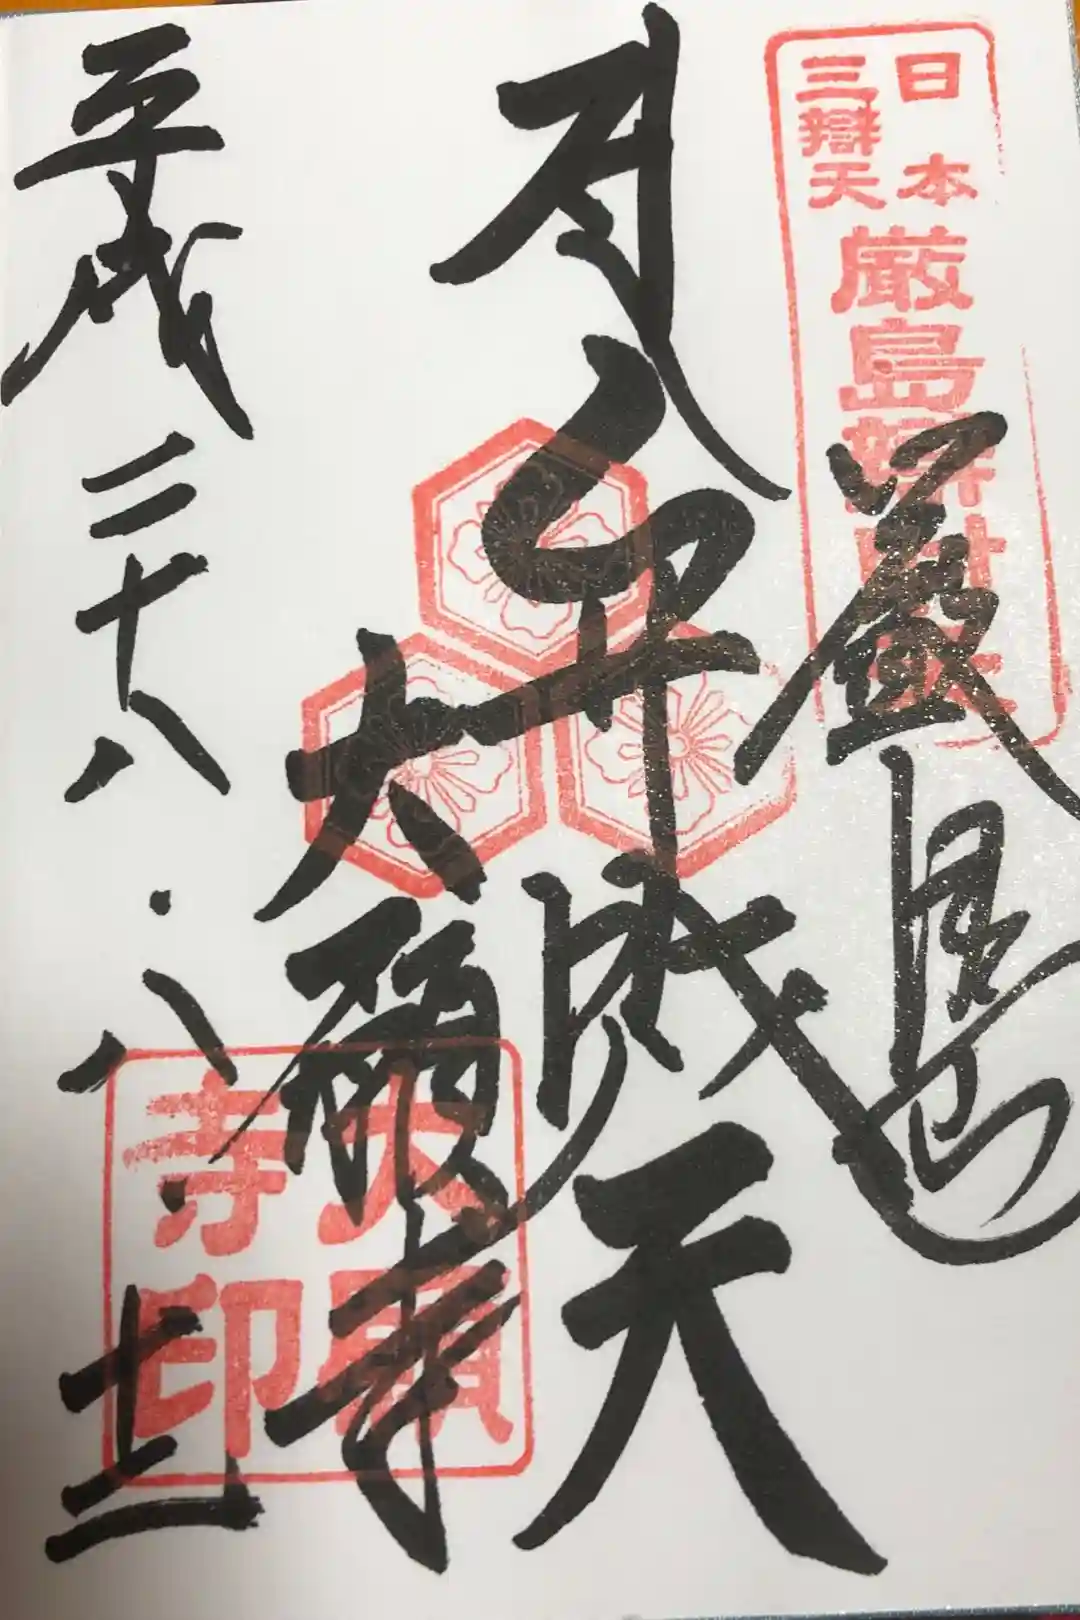 日本
三辯天
厳島辯財天
嚴島
弁財天
大願寺
大願
寺印
平成二十八・八・十二